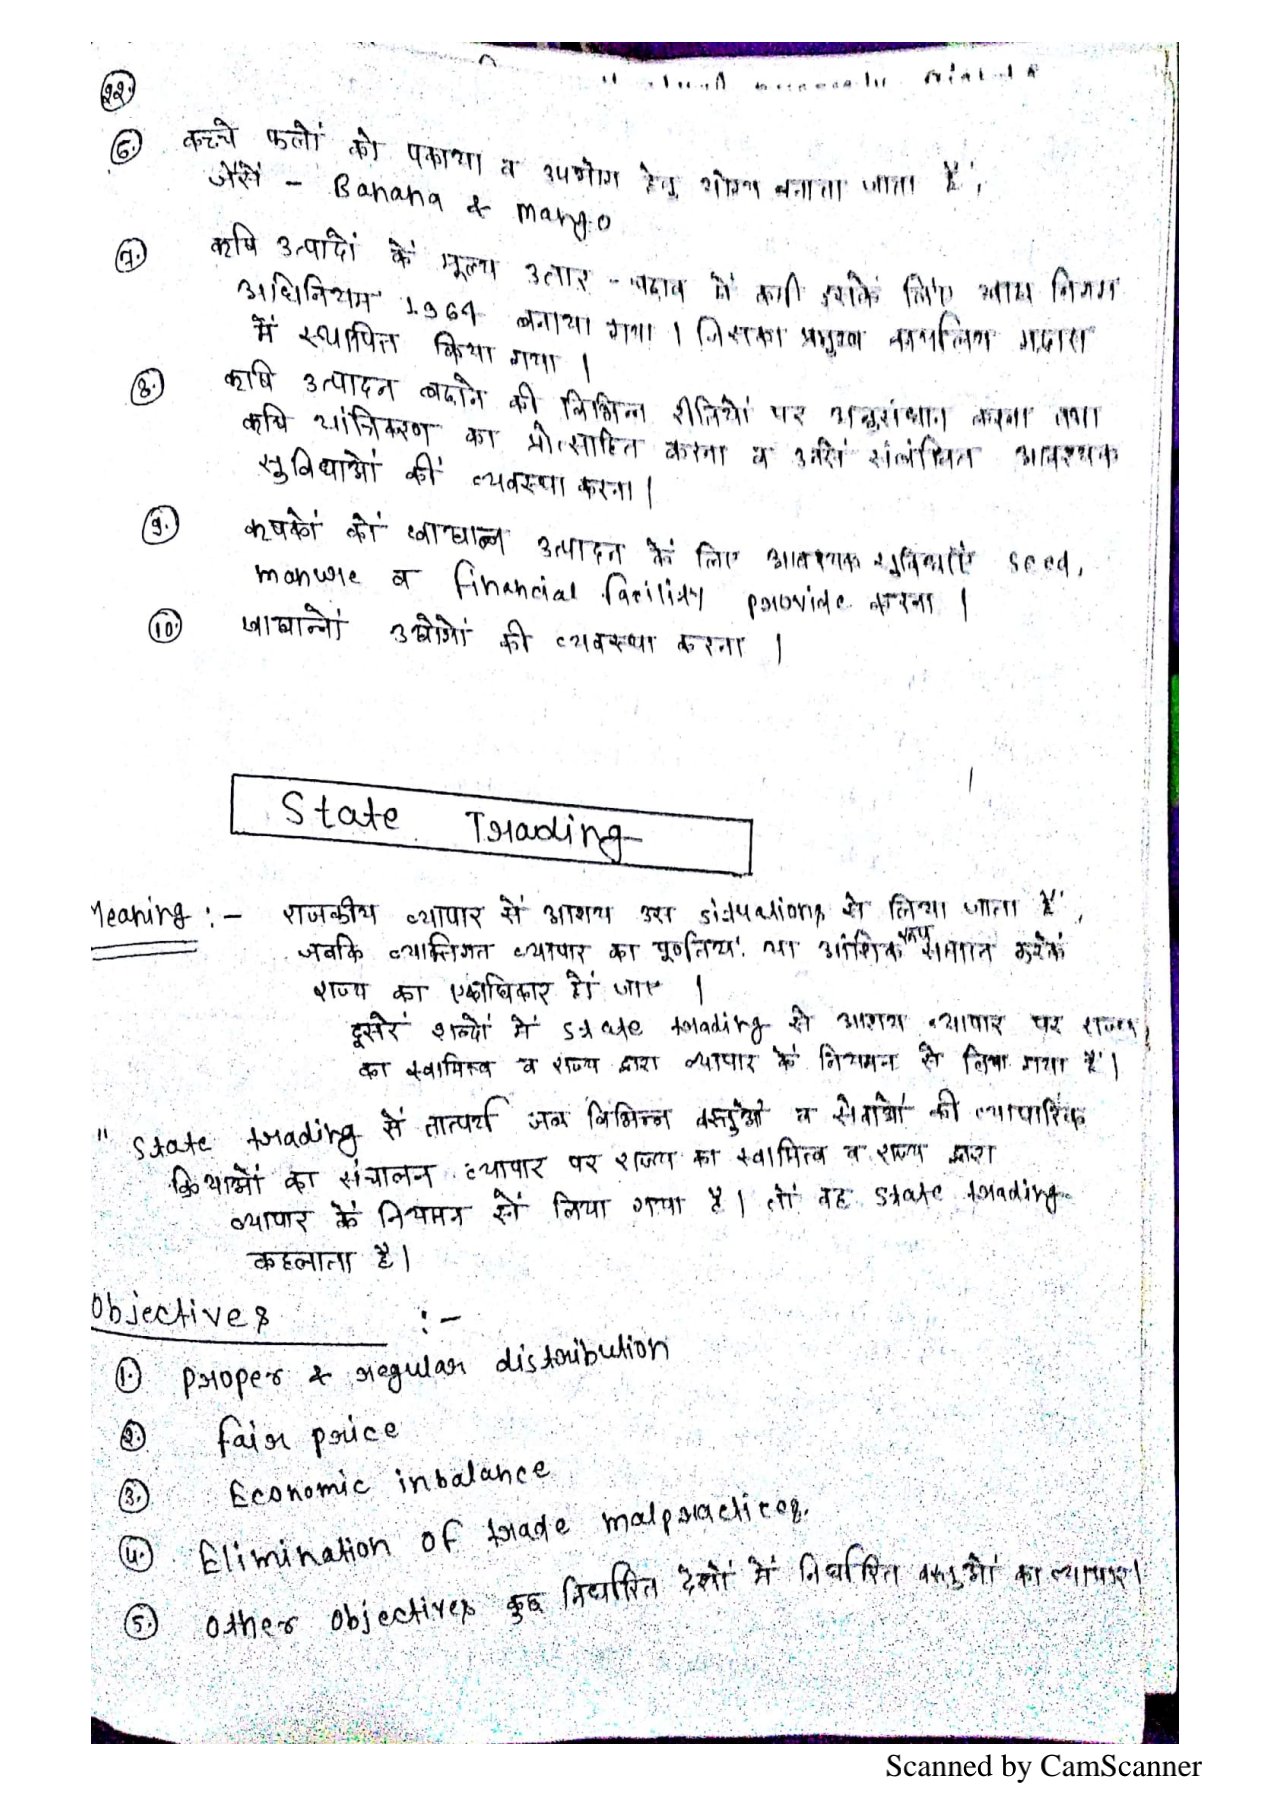 22.
6. कच्चे फलों को पकाया व उपभोग हेतु योग्य बनाया जाता है,
जैसें - Banana & mango
7. कृषि उत्पादों के मूल्य उतार - चढाव में कमी इसके लिए खाद्य निगम
अधिनियम 1964 बनाया गया । जिसका प्रमुख कार्यालय मद्रास
में स्थापित किया गया ।
8. कृषि उत्पादन बढाने की विभिन्न रीतियों पर अनुसंधान करना तथा
कृषि यांत्रिकरण का प्रोत्साहित करना व उनसे संलंग्नित आवश्यक
सुविधाओं की व्यवस्था करना ।
9. कृषकों को खाद्यान्न उत्पादन के लिए आवश्यक सुविधाएं seed,
manure व financial facility provide करना ।
10. खाद्यान्नों उद्योगों की व्यवस्था करना ।
State Trading
Meaning :- राजकीय व्यापार सें आशय उस situations से लिया जाता है,
जबकि व्यक्तिगत व्यापार का पूर्णतया या आंशिक रूप समाप्त करके
राज्य का एकाधिकार हो जाए ।
दूसरें शब्दों में state trading से आशय व्यापार पर राज्य
का स्वामित्व व राज्य द्वारा व्यापार के नियमन से लिया गया है ।
" State trading सें तात्पर्य जब विभिन्न वस्तुओं व सेवाओं की व्यापारिक
क्रियाओं का संचालन व्यापार पर राज्य का स्वामित्व व राज्य द्वारा
व्यापार के नियमन सें लिया गया है । तो वह state trading
कहलाता है ।
Objectives :-
1. proper & regular distribution
2. fair price
3. Economic inbalance
4. Elimination of trade malpractices.
5. Other objectives कुछ निर्धारित देशों में निर्धारित वस्तुओं का व्यापार ।
Scanned by CamScanner